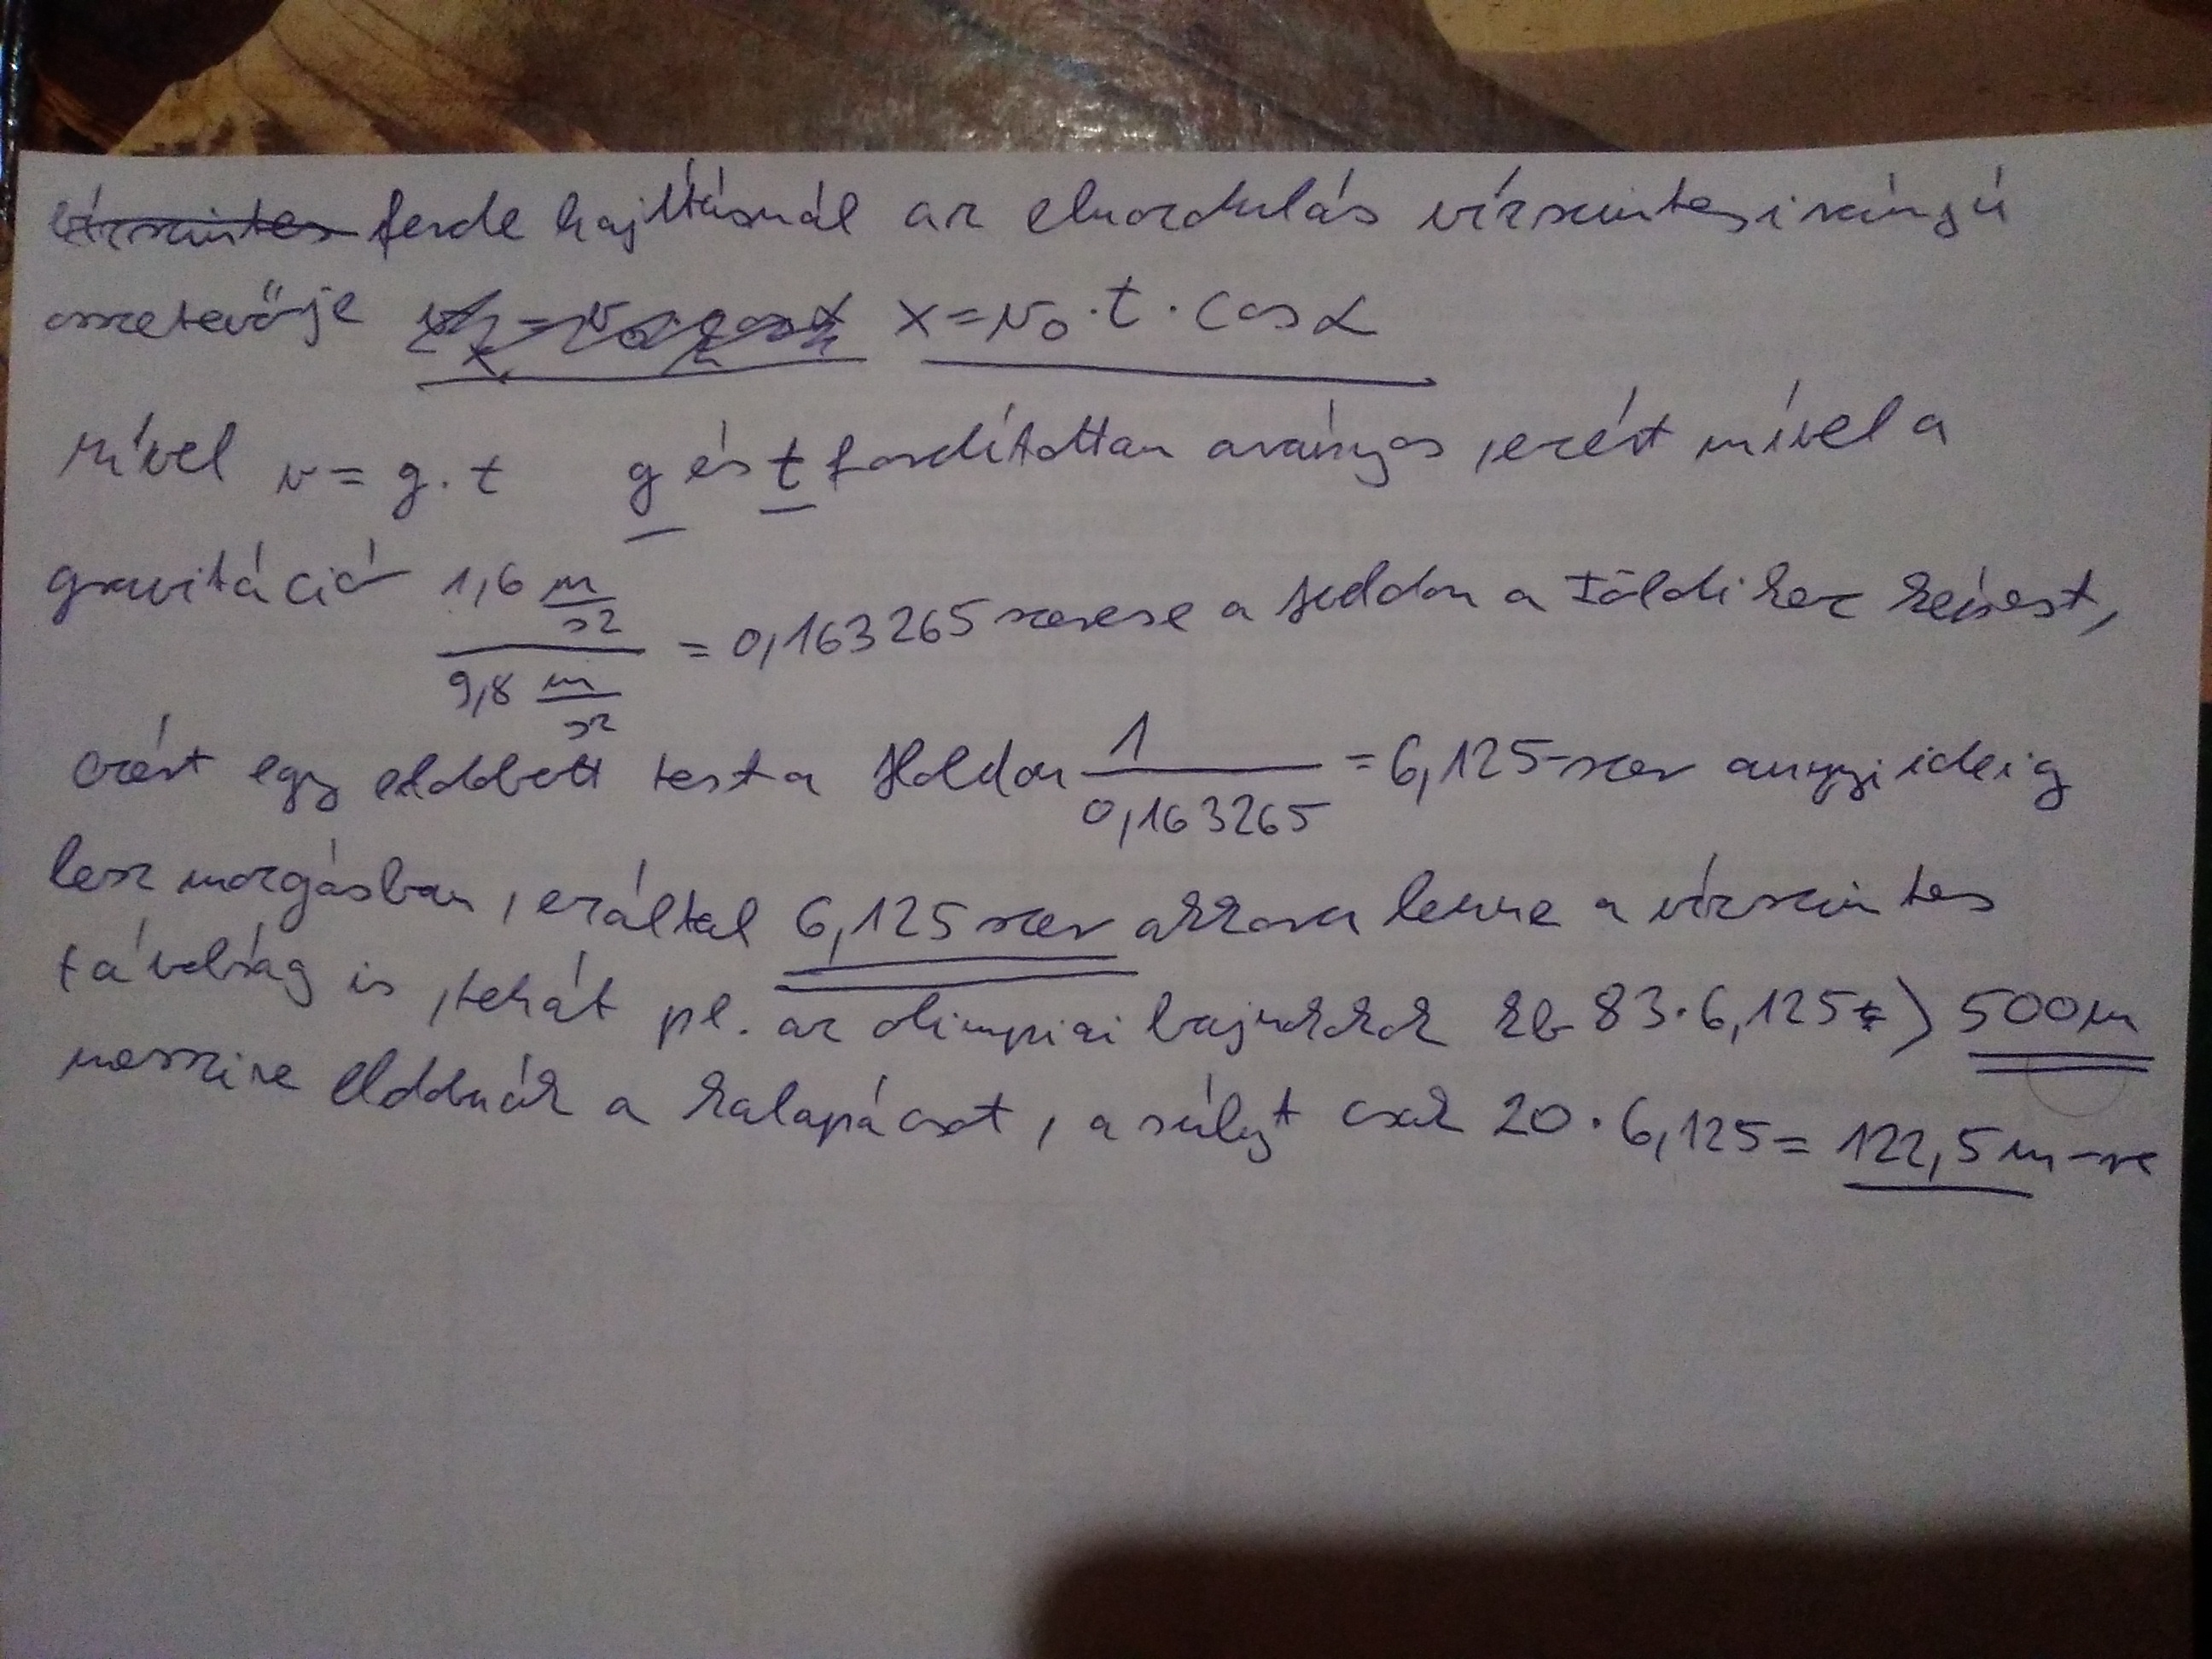 vízszintes ferde hajításnál az elmozdulás vízszintes irányú
összetevője x = v₀ · t · cos α
Mivel v = g · t g és t fordítottan arányos, ezért mivel a
gravitáció 1,6 m/s² / 9,8 m/s² = 0,163265 szerese a Holdon a Földihez képest,
ezért egy eldobott test a Holdon 1/0,163265 = 6,125-szer annyi ideig
lesz mozgásban, ezáltal 6,125 szer akkora lenne a vízszintes
távolság is, tehát pl. az olimpiai bajnokok kb 83 · 6,125 > 500 m
messzire eldobnák a kalapácsot, a súlyt csak 20 · 6,125 = 122,5 m-re